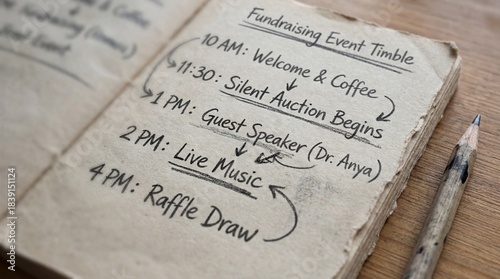 Fundraising Event Timble
10 AM: Welcome & Coffee
11:30: Silent Auction Begins
1 PM: Guest Speaker (Dr. Anya)
2 PM: Live Music
4 PM: Raffle Draw
Adobe Stock | #1839151124